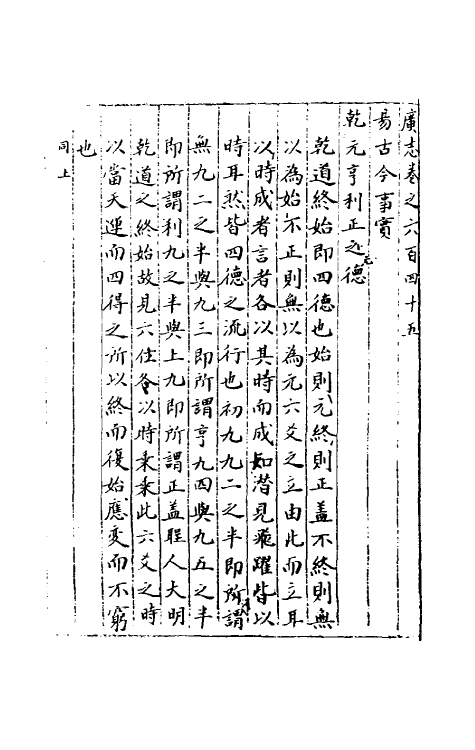 廣志卷之六百四十五
易古今事實
乾元亨利正之德
乾道終始即四德也始則元終則正蓋不終則無
以為始不正則無以為元六爻之立由此而立耳
以時成者言者各以其時而成如潛見飛躍皆以
時耳然皆四德之流行也初九九二之半即所謂
無九二之半與九三即所謂亨九四與九五之半
即所謂利九之半與上九即所謂正蓋聖人大明
乾道之終始故見六住各以時乗乗此六爻之時
以當天運而四得之所以終而復始應變而不窮
也
同上